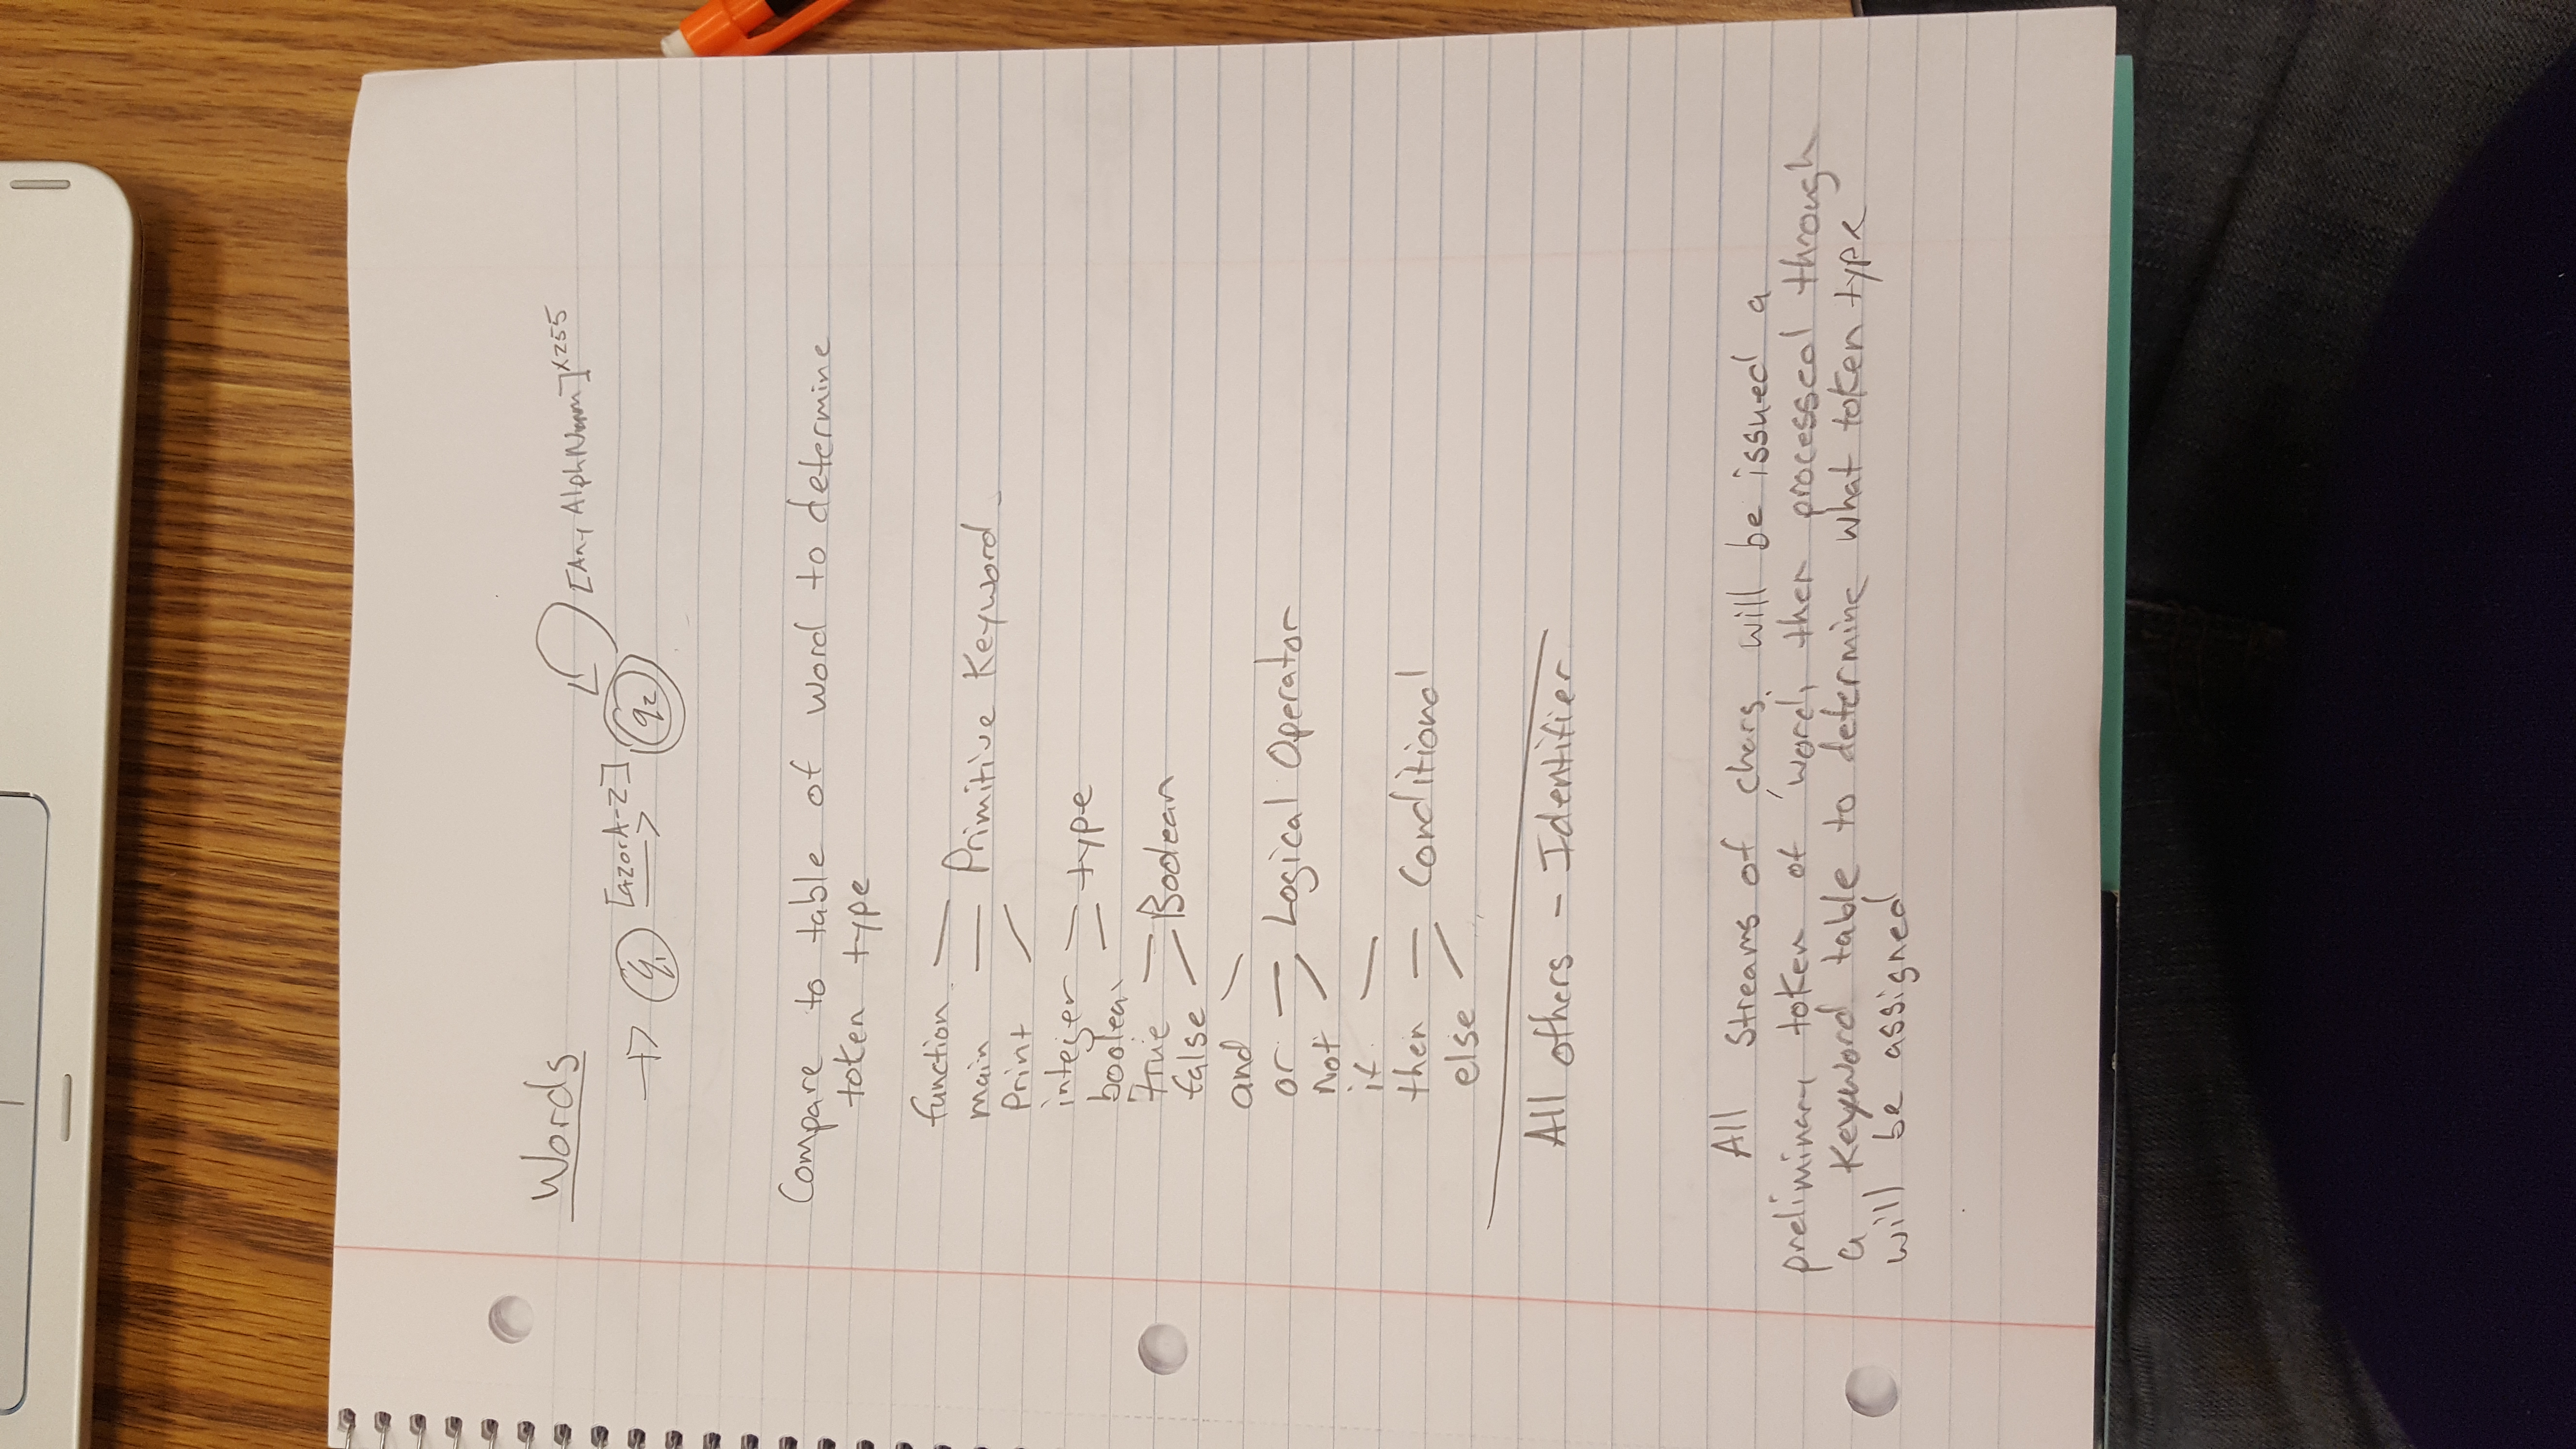 Words
[Any AlphNum]x255
→ q1 [azorA-Z] → q2
Compare to table of word to determine
token type
function
main — Primitive Keyword
Print
integer — type
boolean
True — Boolean
false
and
or — Logical Operator
not
if
then — Conditional
else
All others - Identifier
All streams of chars. will be issued a
preliminary token of word, then processed through
a Keyword table to determine what token type
will be assigned